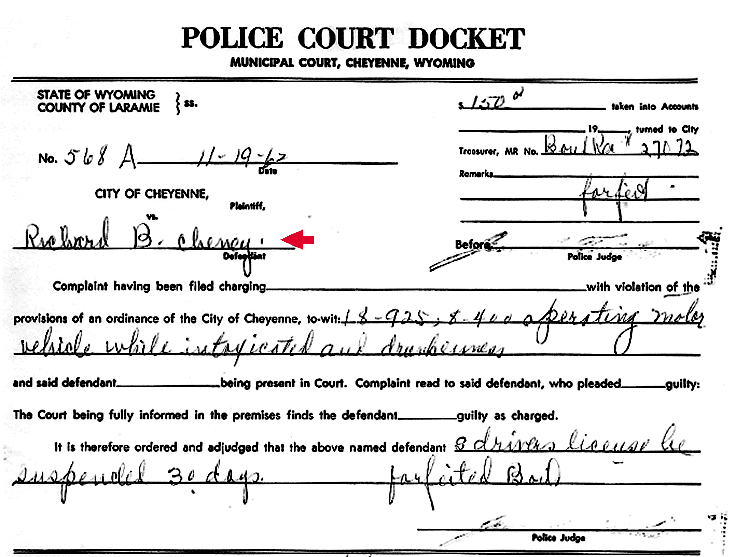 POLICE COURT DOCKET
MUNICIPAL COURT, CHEYENNE, WYOMING
STATE OF WYOMING
COUNTY OF LARAMIE } ss.
$ 150 taken into Accounts
19 , turned to City
No. 568 A 11-19-62
Date
Treasurer, MR No. 27072
Remarks
forfeit
CITY OF CHEYENNE,
Plaintiff,
vs.
Richard B. Cheney.
Defendant
Before
Police Judge
Complaint having been filed charging with violation of the
provisions of an ordinance of the City of Cheyenne, to-wit: 18-925; 8-400 operating motor
vehicle while intoxicated and drunkenness
and said defendant being present in Court. Complaint read to said defendant, who pleaded guilty:
The Court being fully informed in the premises finds the defendant guilty as charged.
It is therefore ordered and adjudged that the above named defendant s drivers license be
suspended 30 days. forfeited Bond
Police Judge